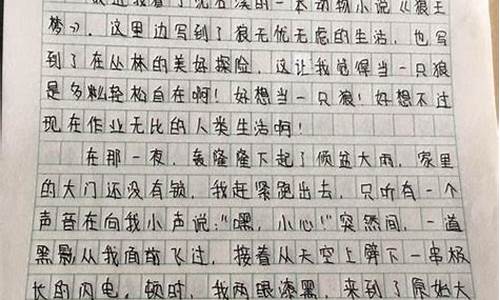 最近我看了沈石溪的一本动物小说《狼王
梦》，这里边写到了狼无忧无虑的生活，也写
到了在丛林的美好探险，这让我觉得当一只狼
是多么轻松自在啊！好想当一只狼！好想不过
现在作业无比的人类生活啊！
在那一夜，轰隆隆下起了倾盆大雨，家里
的大门还没有锁，我赶紧跑出去，只听有一个
声音在向我小声说："嘿，小心！"突然间，一道
黑影从我面前飞过，接着从天空上劈下一串极
长的闪电，顿时，我两眼漆黑，来到了原始大